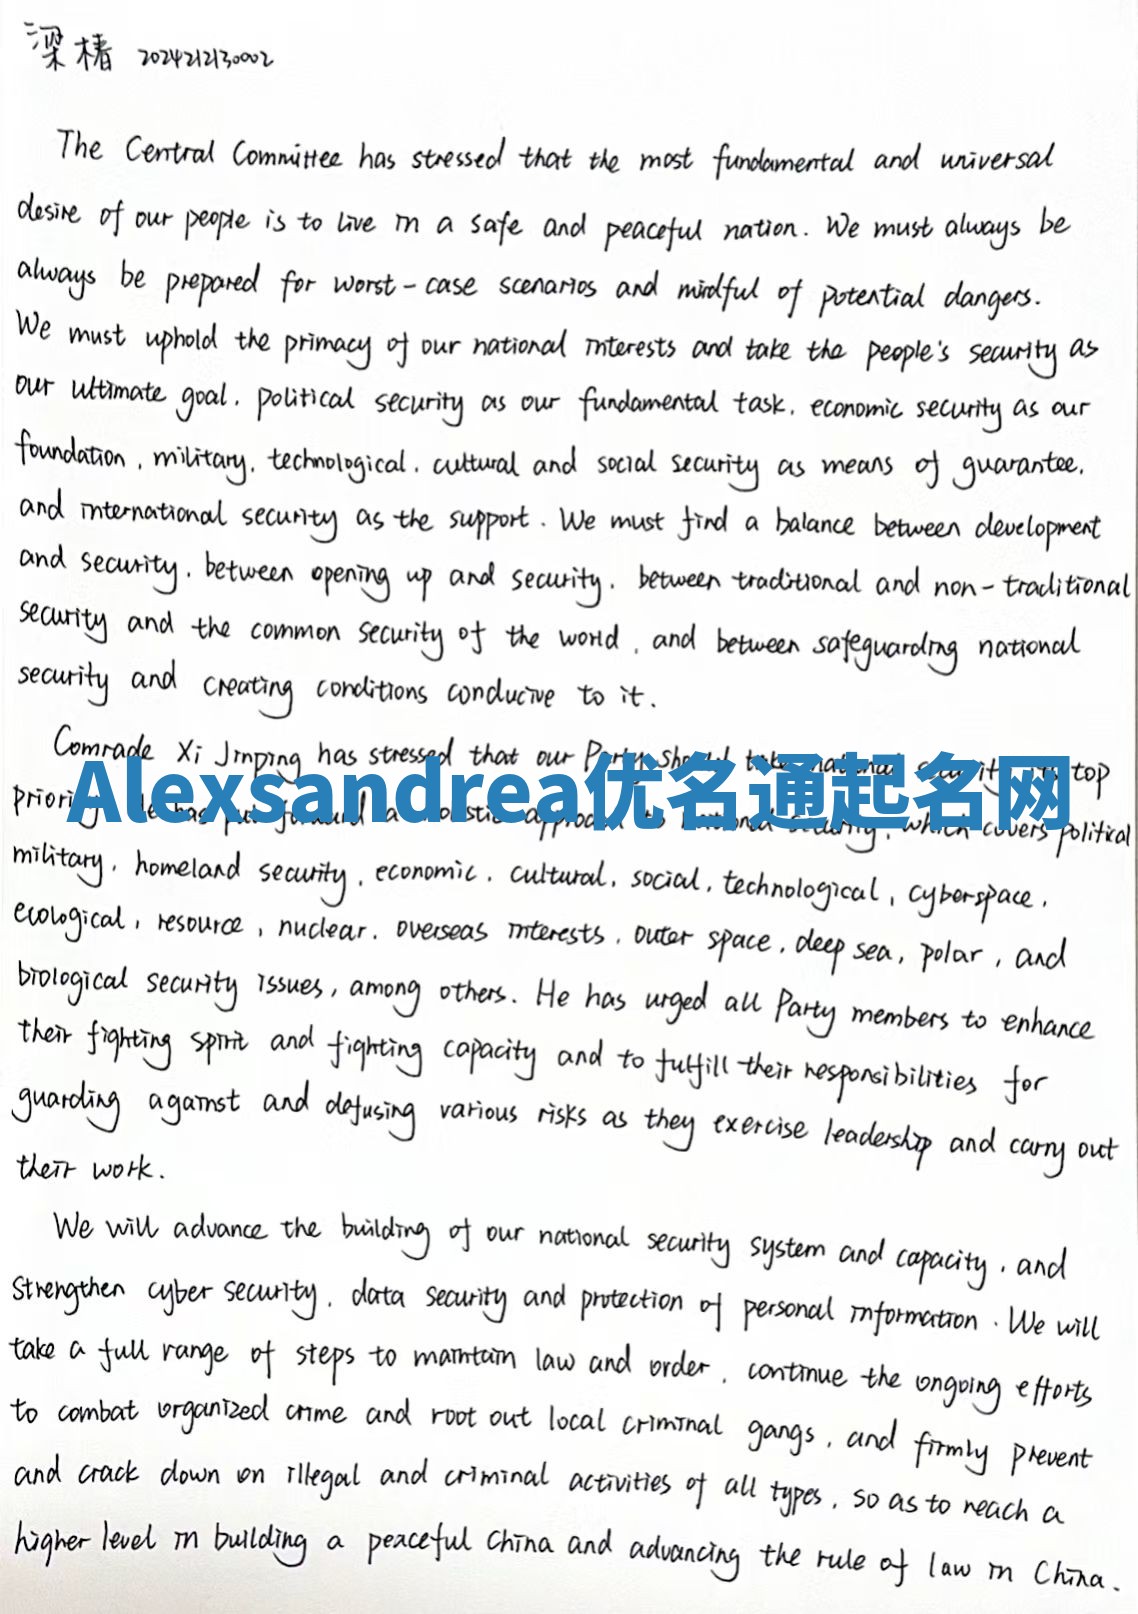 梁椿 2024212130002
The Central Committee has stressed that the most fundamental and universal
desire of our people is to live in a safe and peaceful nation. We must always be
always be prepared for worst-case scenarios and mindful of potential dangers.
We must uphold the primacy of our national interests and take the people's security as
our ultimate goal, political security as our fundamental task, economic security as our
foundation, military, technological, cultural and social security as means of guarantee,
and international security as the support. We must find a balance between development
and security, between opening up and security, between traditional and non-traditional
security and the common security of the world, and between safeguarding national
security and creating conditions conducive to it.
Comrade Xi Jinping has stressed that our Party should take national security its top
Alexsandrea优名通起名网
priority. He has put forward a holistic approach to national security, which covers political
military, homeland security, economic, cultural, social, technological, cyberspace,
ecological, resource, nuclear, overseas interests, outer space, deep sea, polar, and
biological security issues, among others. He has urged all Party members to enhance
their fighting spirit and fighting capacity and to fulfill their responsibilities for
guarding against and defusing various risks as they exercise leadership and carry out
their work.
We will advance the building of our national security system and capacity, and
strengthen cyber security, data security and protection of personal information. We will
take a full range of steps to maintain law and order, continue the ongoing efforts
to combat organized crime and root out local criminal gangs, and firmly prevent
and crack down on illegal and criminal activities of all types, so as to reach a
higher level in building a peaceful China and advancing the rule of law in China.